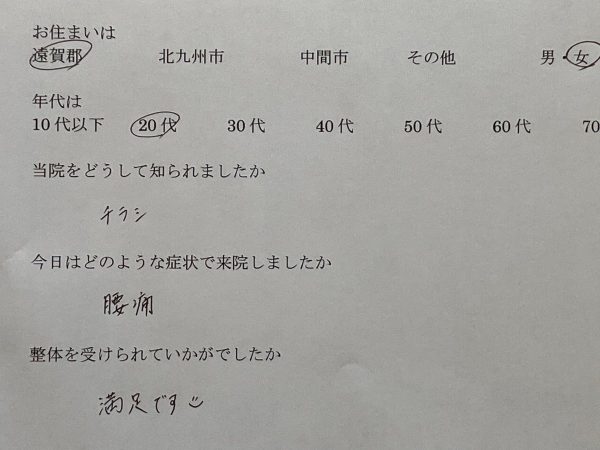 お住まいは
遠賀郡 北九州市 中間市 その他 男・女
年代は
10代以下 20代 30代 40代 50代 60代 70
当院をどうして知られましたか
チラシ
今日はどのような症状で来院しましたか
腰痛
整体を受けられていかがでしたか
満足です